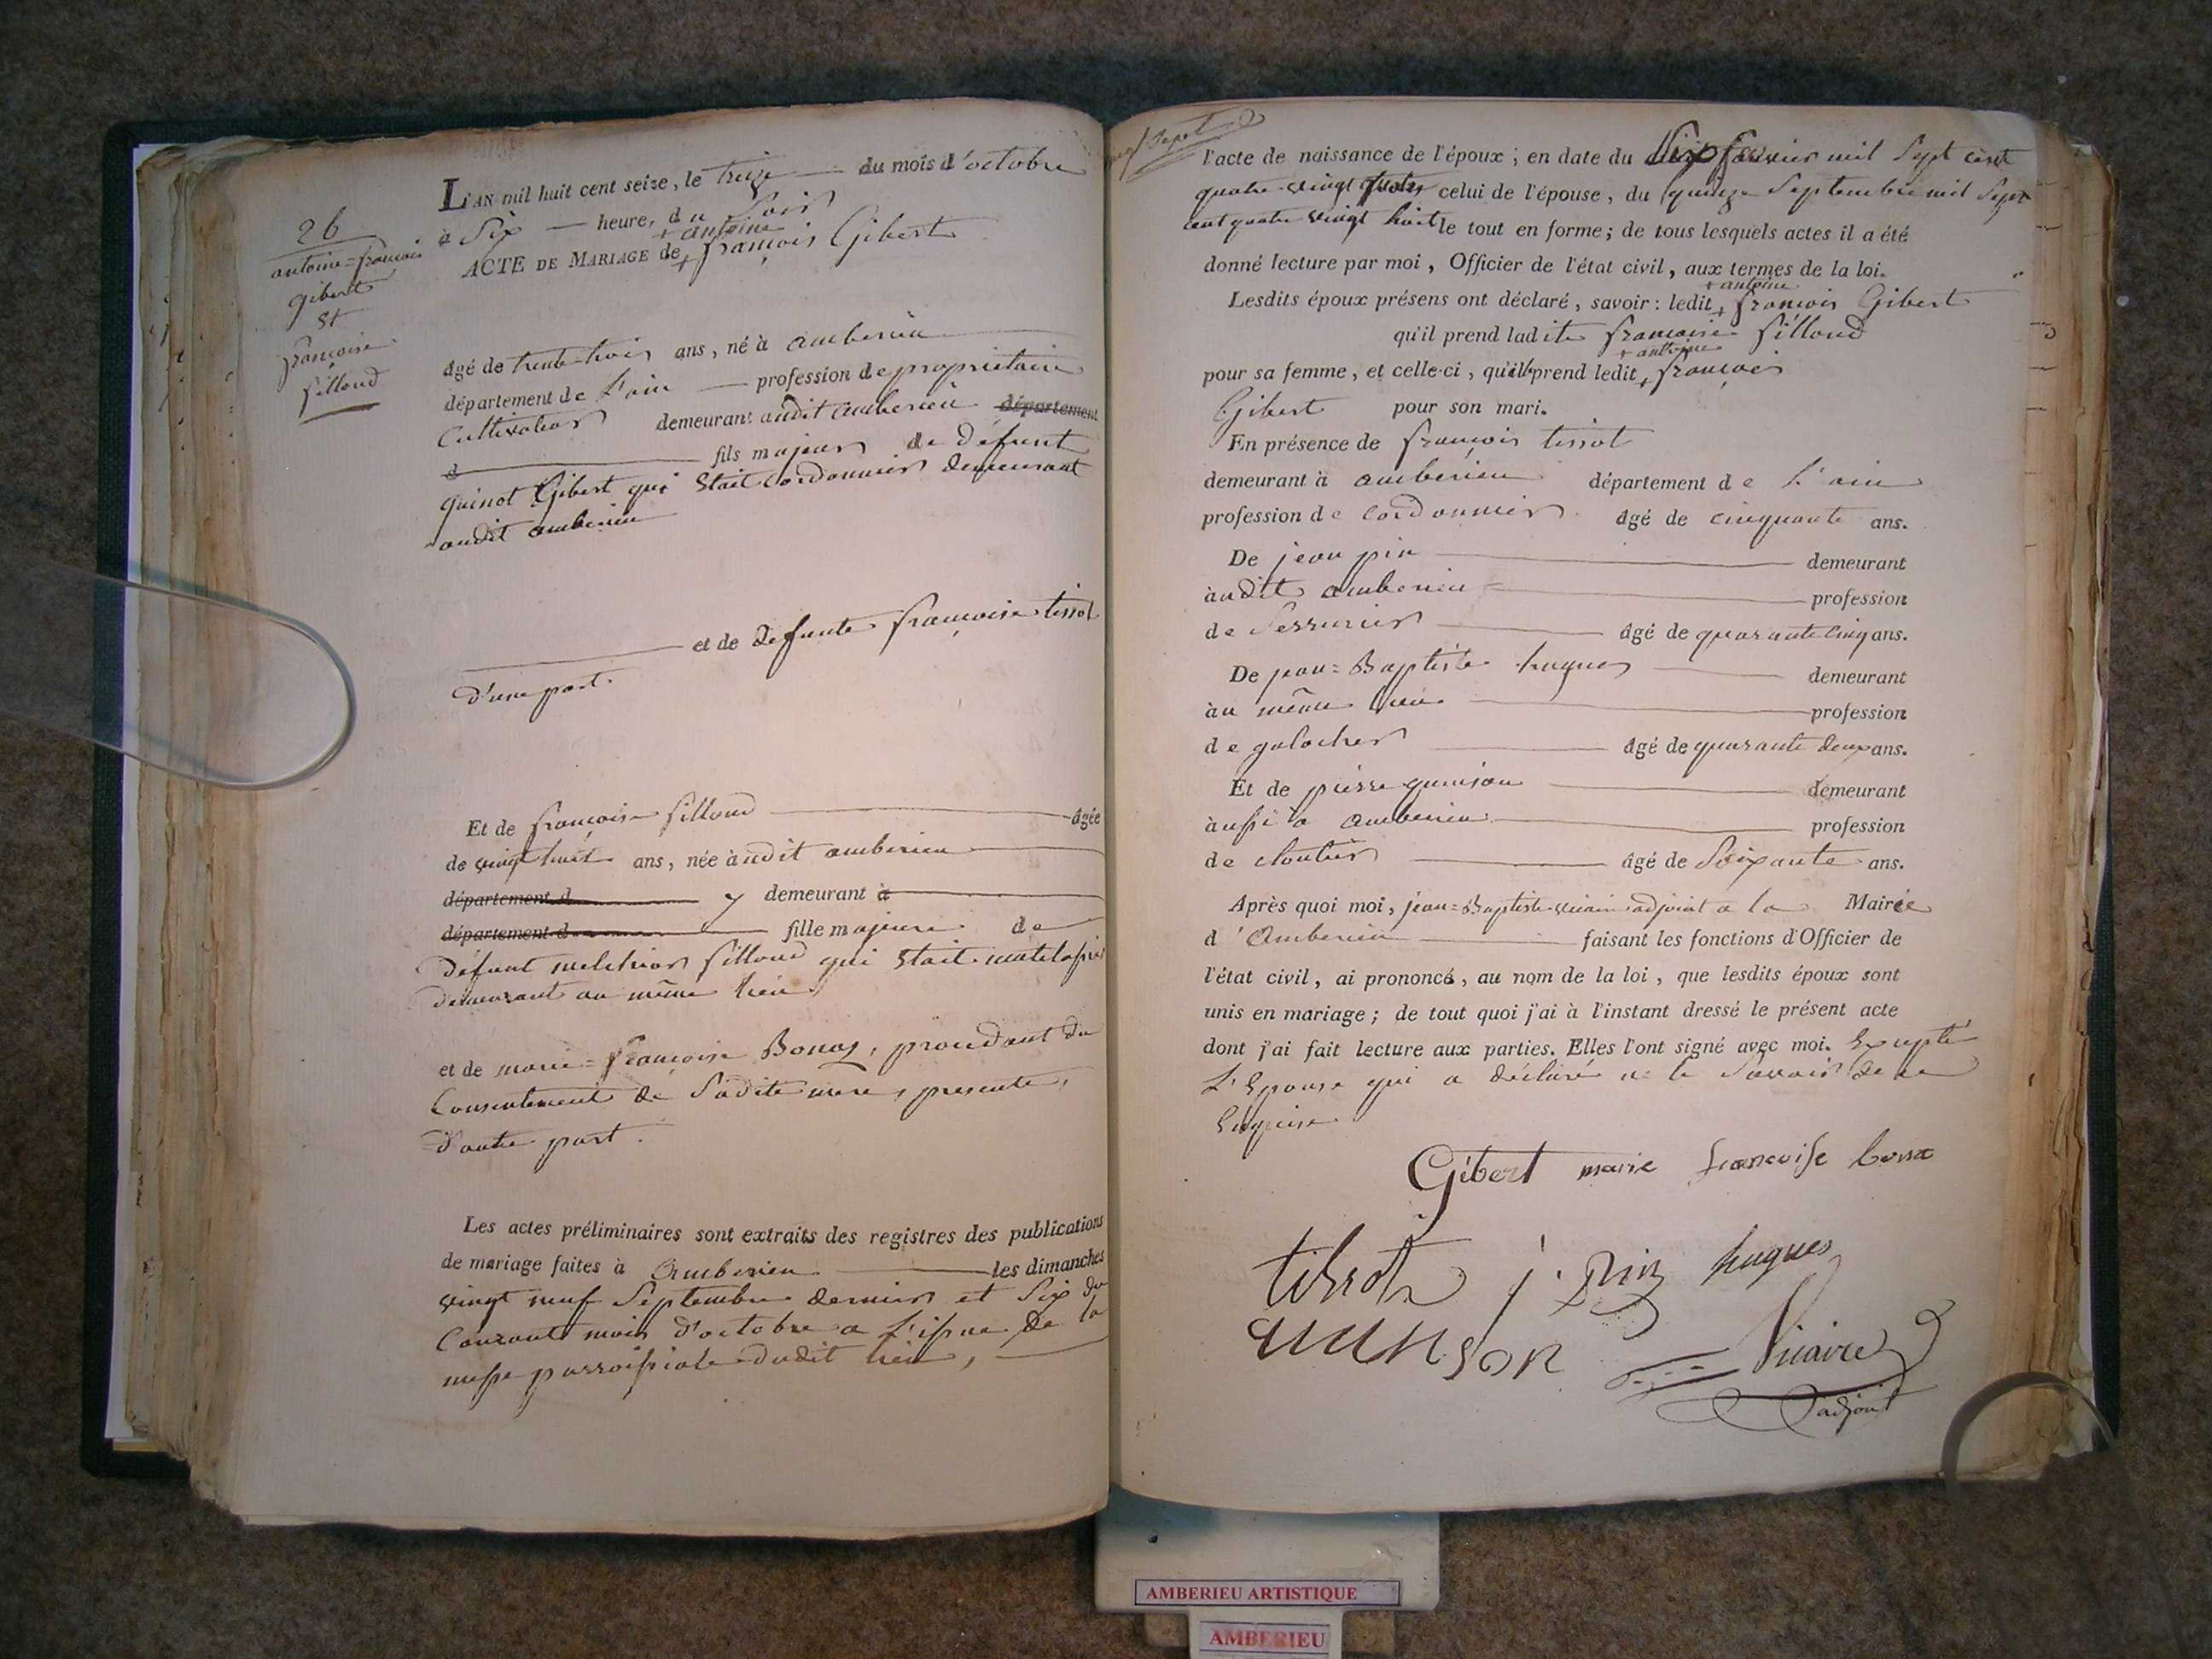 26
antoine=francois
gibert
et
françoise
silloud
L'AN mil huit cent seize, le treize du mois d'octobre
à six heure, du soir
+ antoine
ACTE DE MARIAGE de + françois Gibert
âgé de trente trois ans, né à amberieu
département de l'ain profession de propriétaire
cultivateur demeurant audit amberieu département
d fils majeur de défunt
Gibert qui etait cordonnier demeurant
audit amberieu
et de defunte françoise tissot
d'une part.
Et de françoise silloud âgée
de vingt huit ans, née àudit amberieu
département d y demeurant à
département d fille majeure de
défunt melchior silloud qui etait matelassier
demeurant au même lieu
et de marie=françoise Bonaz, procedant du
consentement de sadite mere, presente,
d'autre part.
Les actes préliminaires sont extraits des registres des publications
de mariage faites à amberieu les dimanches
vingt neuf septembre dernier et six du
courant mois d'octobre a l'issue de la
messe parroissiale dudit lieu,
l'acte de naissance de l'époux; en date du janvier mil sept cent
quatre-vingt celui de l'épouse, du quinze septembre mil sept
cent quatre vingt huit le tout en forme; de tous lesquels actes il a été
donné lecture par moi, Officier de l'état civil, aux termes de la loi.
+ antoine
Lesdits époux présens ont déclaré, savoir: ledit + françois Gibert
qu'il prend ladite françoise silloud
+ antoine
pour sa femme, et celle-ci, qu'elle prend ledit + françois
Gibert pour son mari.
En présence de françois tissot
demeurant à amberieu département de l'ain
profession de cordonnier âgé de cinquante ans.
De jean pin demeurant
àudit amberieu profession
de serrurier âgé de quarante cinq ans.
De jean=Baptiste hugues demeurant
àu même lieu profession
de galocher âgé de quarante deux ans.
Et de pierre quinson demeurant
àussi a amberieu profession
de cloutier âgé de soixante ans.
Après quoi moi, jean=Baptiste vicaire adjoint a la Mairie
d'Amberieu faisant les fonctions d'Officier de
l'état civil, ai prononcé, au nom de la loi, que lesdits époux sont
unis en mariage; de tout quoi j'ai à l'instant dressé le présent acte
dont j'ai fait lecture aux parties. Elles l'ont signé avec moi. Excepté
l'Epouse qui a déclaré ne le savoir de ce
Enquise
Gibert marie francoise bona
tissot j. pin hugues
quinson Vicaire
adjoint
AMBERIEU ARTISTIQUE
AMBERIEU